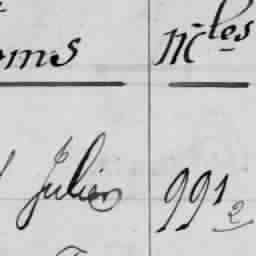 oms Mles
Julien 991 2